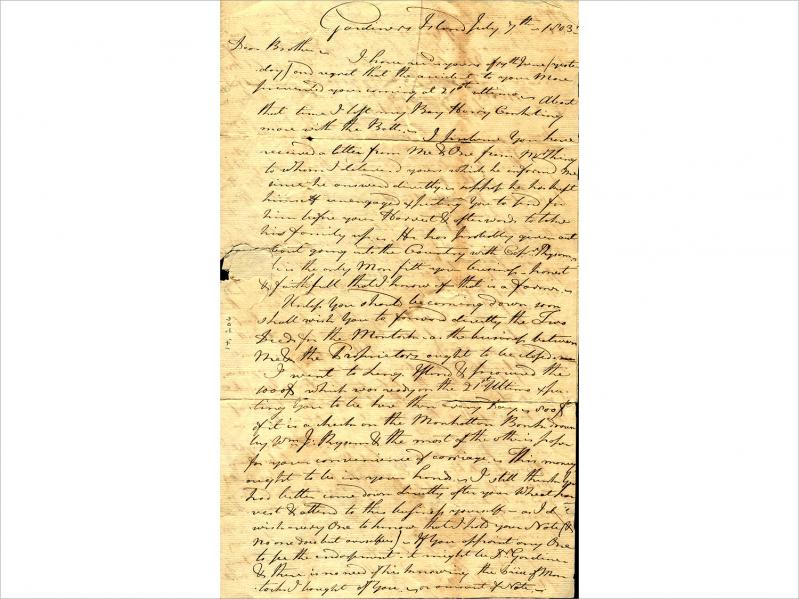 Gardiners Island July 7th 1803
Dear Brother
I have recd yours of 19th June (yester
day) and regret that the accident to your Mare
prevented your coming at 21st ultimo. About
that time I left my Bay Harry
more with the Bell. I presume You have
received a letter from Me & One from Mr
to whom I delivered yours which he informd me
since he answerd directly. he has kept
himself unengaged expecting You to send for
him before your Harvest & afterwards to take
his family up. He has probably given out
going into the Country with Capt
is the only Man fitt your business honest
& faithfull that I know of that is a farmer
Unless You should be coming down soon
shall wish You to forward directly the Two
Deeds for the Montock as the business between
Me & the Proprietors ought to be closed
I went to Long Island & procured the
1000$ which was ready on the 21st Ultimo expec
ting You to be here then every Day 800$
of it is a check on the Manhattan Bank down
by Wm J. & the most of the other is paper
for your convenience of carriage. This money
ought to be in your hands. I still think You
had better come down directly after your Wheat har
vest & attend to this business yourself as I dont
wish every One to know that I hold your Note (&
no one does but ourselves) If You appoint any One
to see the endorsment it might be Dr Gardiner
& there is no need of his knowing the price of Mon
tock I bought of You, or amount of Note